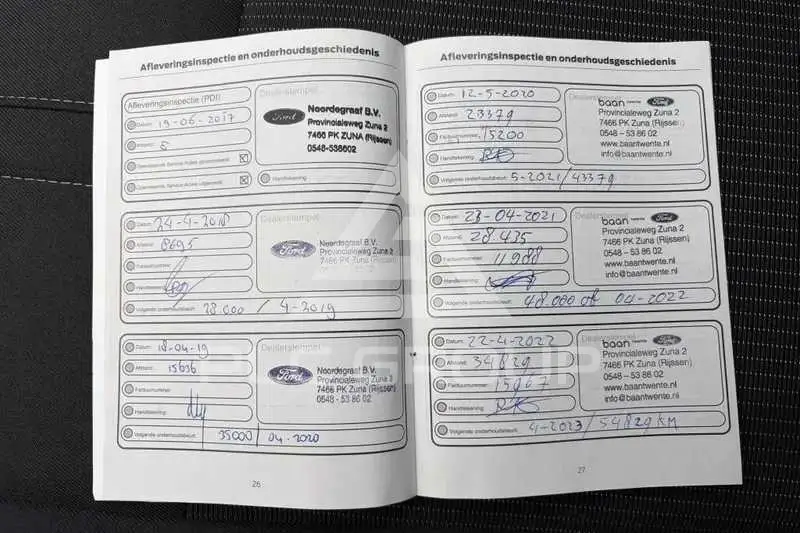 Afleveringsinspectie en onderhoudsgeschiedenis
Afleveringsinspectie (PDI)
Dealerstempel
Datum: 19-06-2017
Afstand: 5
Handtekening:
Ford
Noordegraaf B.V.
Provincialeweg Zuna 2
7466 PK ZUNA (Rijssen)
0548-536602
Datum: 24-4-2018
Afstand: 8695
Factuurnummer:
Handtekening:
Volgende onderhoudsbeurt: 28.000 / 4-2019
Dealerstempel
Ford
Noordegraaf B.V.
Provincialeweg Zuna 2
7466 PK Zuna (Rijssen)
Datum: 18-04-19
Afstand: 15636
Factuurnummer:
Handtekening:
Volgende onderhoudsbeurt: 35000 / 04-2020
Dealerstempel
Ford
Noordegraaf B.V.
Provincialeweg Zuna 2
7466 PK Zuna (Rijssen)
0548 - 53 86 02
26
Afleveringsinspectie en onderhoudsgeschiedenis
Datum: 12-5-2020
Afstand: 23379
Factuurnummer: 15200
Handtekening:
Volgende onderhoudsbeurt: 5-2021/43379
baan twente Ford
Provincialeweg Zuna 2
7466 PK ZUNA (Rijssen)
0548 - 53 86 02
www.baantwente.nl
info@baantwente.nl
Datum: 23-04-2021
Afstand: 28.435
Factuurnummer: 11988
Handtekening:
Volgende onderhoudsbeurt: 48.000 of 04-2022
baan twente Ford
Provincialeweg Zuna 2
7466 PK ZUNA (Rijssen)
0548 - 53 86 02
www.baantwente.nl
info@baantwente.nl
Datum: 22-4-2022
Afstand: 34829
Factuurnummer: 15967
Handtekening:
Volgende onderhoudsbeurt: 4-2023/54829 KM
baan twente Ford
Provincialeweg Zuna 2
7466 PK ZUNA (Rijssen)
0548 - 53 86 02
www.baantwente.nl
info@baantwente.nl
27